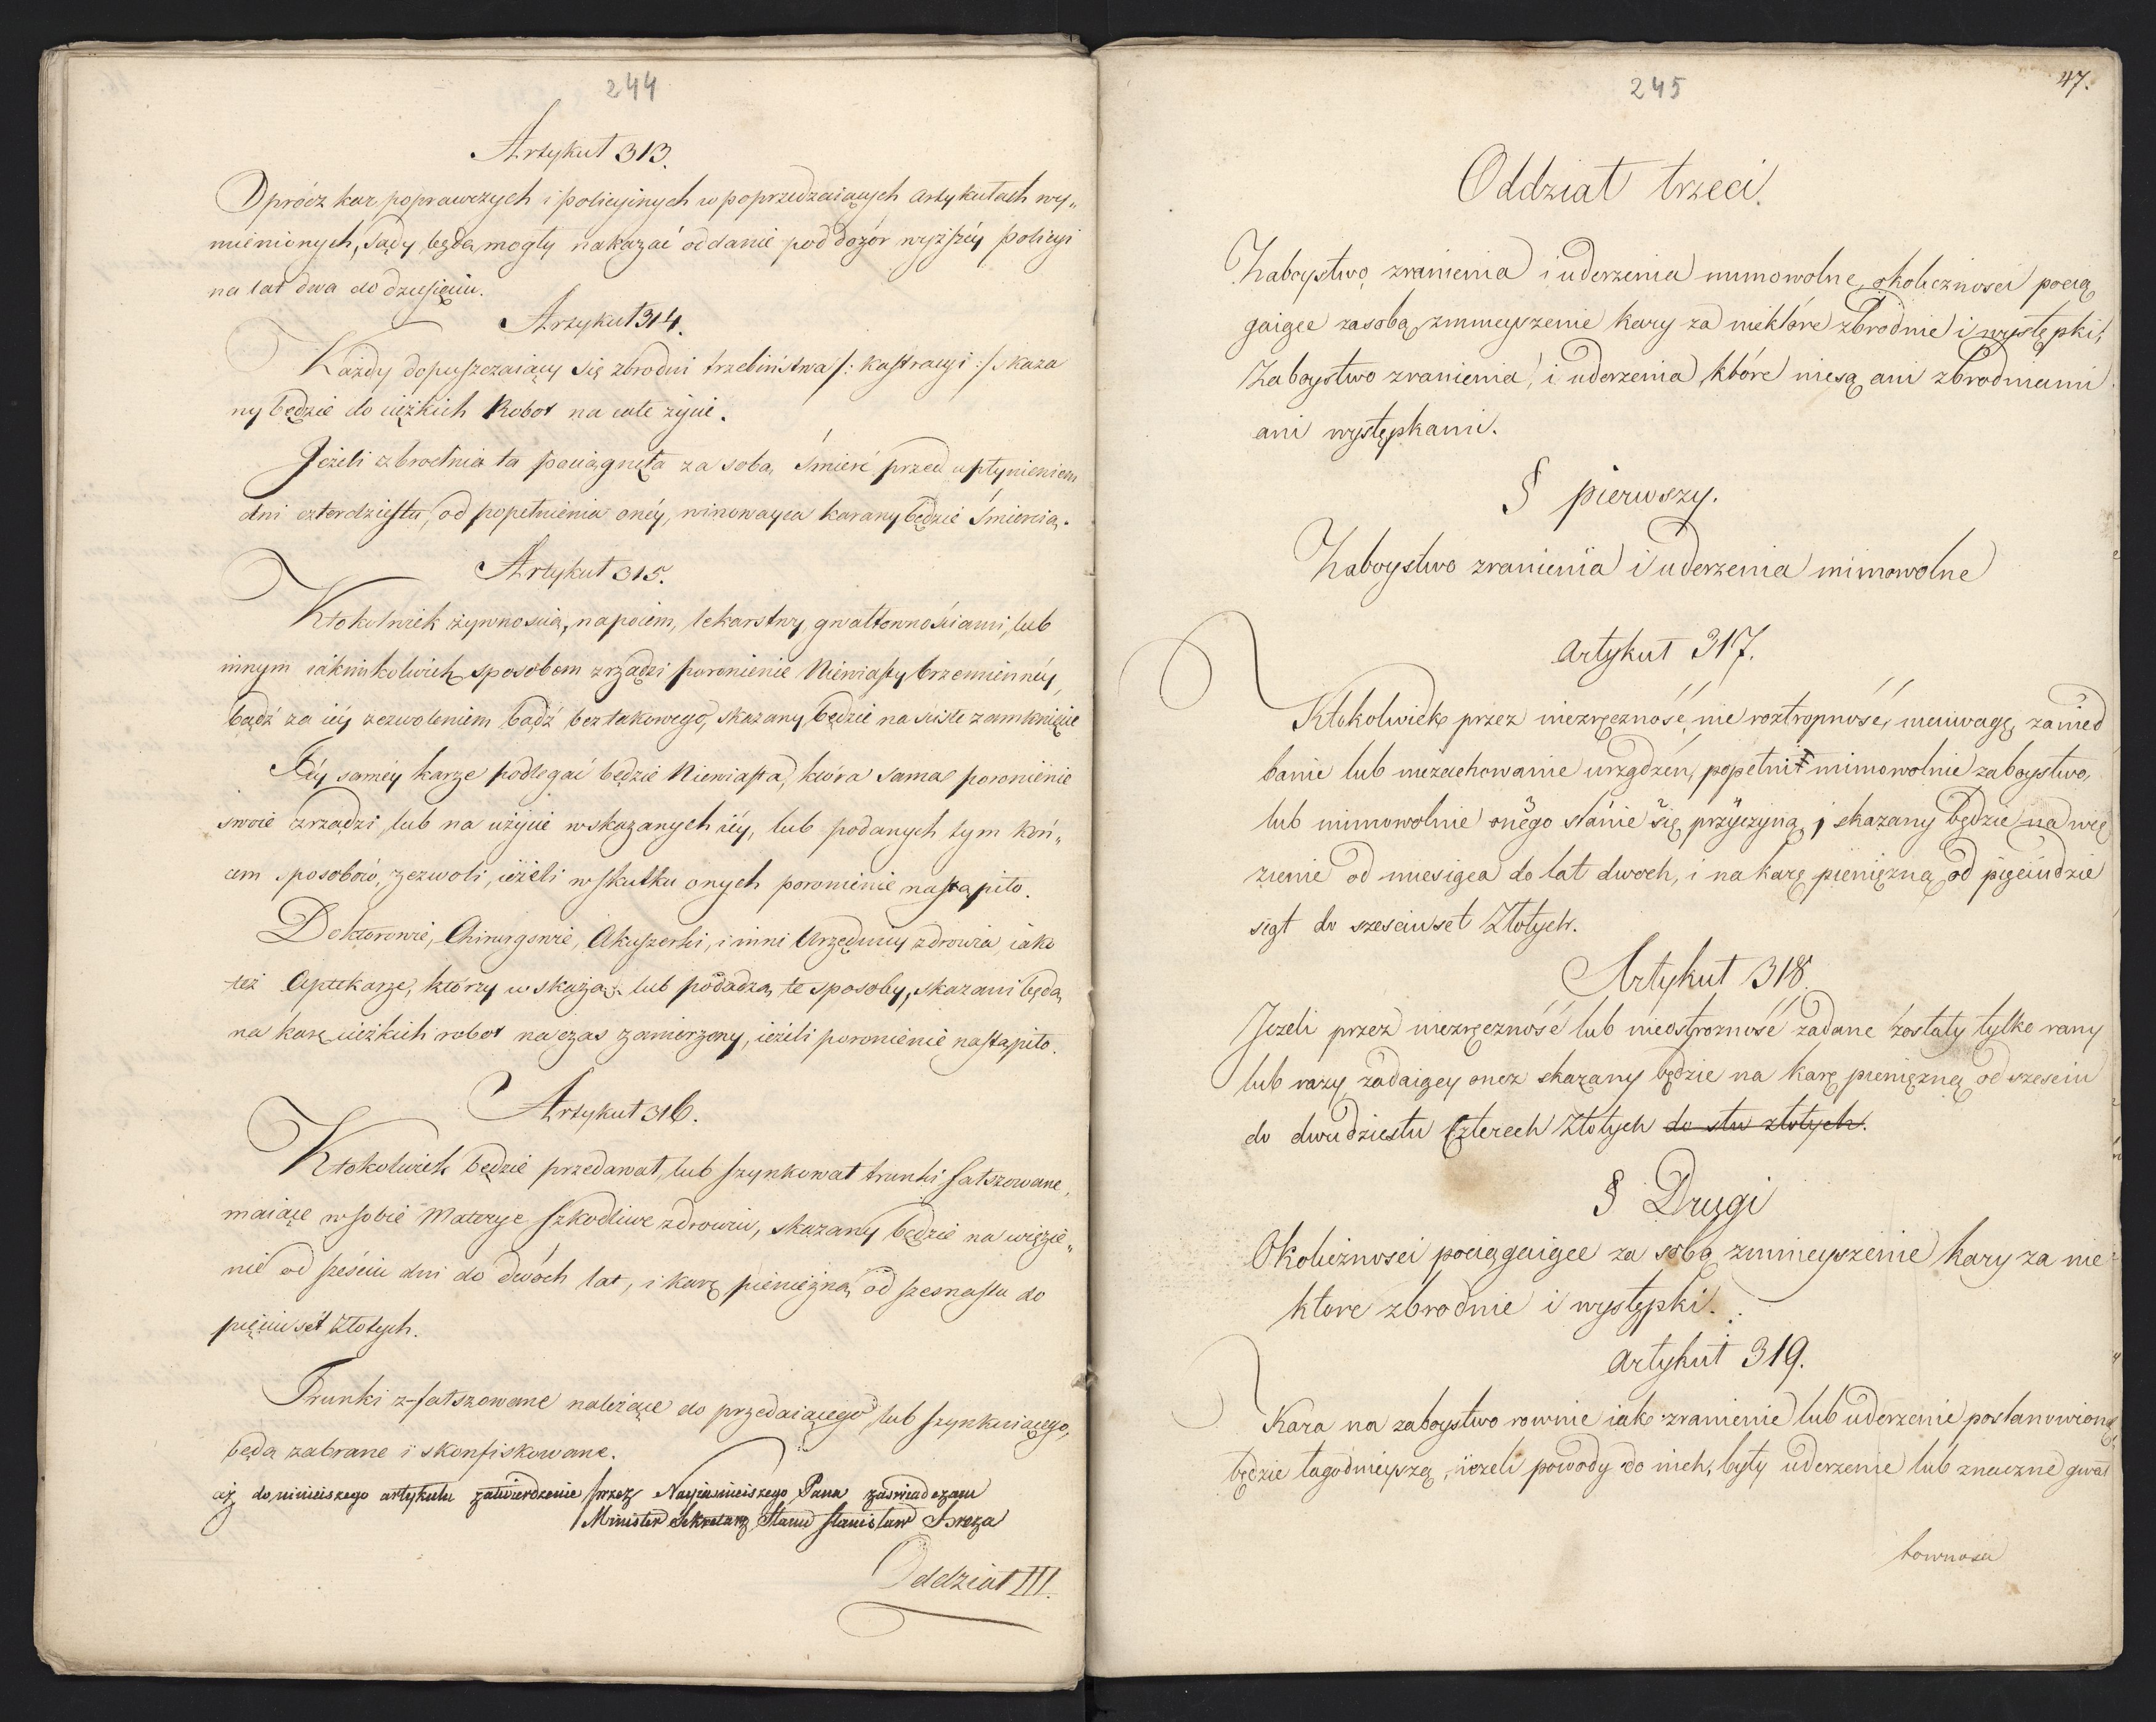 244
Artykuł 313.
Oprócz kar poprawczych i policyinych w poprzedzaiących artykułach wy„
mienionych, sądy będą mogły nakazać oddanie pod dozór wyższéy policyi
na lat dwa do dziesięciu.
Artykuł 314.
Każdy dopuszczaiący się zbrodni trzebiństwa /: kastracyi :/ skaza
ny będzie do cięzkich Robot na całe życie.
Jeżeli zbrodnia ta pociągnęła za sobą śmierć przed upłynieniem
dni czterdziestu, od popełnienia onéy, winowayca karany będzie śmiercią.
Artykuł 315.
Ktokolwiek żywnością, napoiem, lekarstwy, gwałtownościami, lub
innym iakimkolwiek sposobem zrządzi poronienie Niewiasty brzemiennéy,
bądź za iéy zezwoleniem bądź bez takowego, skazany będzie na ścisłe zamknięcie
Téy saméy karze podlegać będzie Niewiasta, która sama poronienie
swoie zrządzi, lub na użycie wskazanych iéy, lub podanych tym koń„
cem sposobów, zezwoli, ieżeli w skutku onych poronienie nastąpiło.
Doktorowie, Chirurgowie, Akuszerki, i inni Urzędnicy zdrowia, iako
też Aptekarze, którzy wskażą lub podadzą te sposoby, skazani będą
na karę ciężkich robot na czas zamierzony, ieżeli poronienie nastąpiło.
Artykuł 316.
Ktokolwiek będzie przedawał, lub szynkował trunki fałszowane,
maiące w sobie Materye szkodliwe zdrowiu, skazany będzie na więzie„
nie od sześciu dni do dwóch lat, i karę pieniężną od szesnastu do
pięciu set Złotych.
Trunki z-fałszowane należące do przedaiącego, lub szynkuiącego,
będą zabrane i skonfiskowane.
aż do ninieiszego artykułu zatwierdzenie przez Nayiasnieiszego Pana zaswiadczam
Minister Sekretarz Stanu Stanisław Breza
Oddział III.
47.
245
Oddział trzeci.
Zaboystwo, zranienia i uderzenia mimowolne, okoliczności pocią
gaiące zasobą zmnieyszenie kary za niektóre zbrodnie i występki,
Zaboystwo zranienia, i uderzenia które niesą ani zbrodniami
ani występkami.
§ pierwszy.
Zaboystwo zranienia i uderzenia mimowolne
Artykuł 317.
Ktokolwiek przez niezręczność, nie roztropność, nieuwagę, zanied
banie lub niezachowanie urządzeń, popełni mimowolnie zaboystwo,
lub mimowolnie onego stanie się przyczyną, skazany będzie na wię
zienie od miesiąca do lat dwoch, i na karę pieniężną od pięciudzie
siąt do szesciuset Złotych.
Artykuł 318.
Jezeli przez niezręczność lub nieostrozność zadane zostały tylko rany
lub razy zadaiący onez skazany będzie na karę pieniężną od szesciu
do dwudziestu czterech Złotych do stu złotych.
§ Drugi
Okolicznosci pociągaiące za sobą zmnieyszenie kary za nie
ktore zbrodnie i występki.
Artykuł 319.
Kara na zaboystwo rownie iak zranienie lub uderzenie postanowioną
będzie łagodnieyszą, ieżeli powody do nich, były uderzenie lub znaczne gwał
townosci